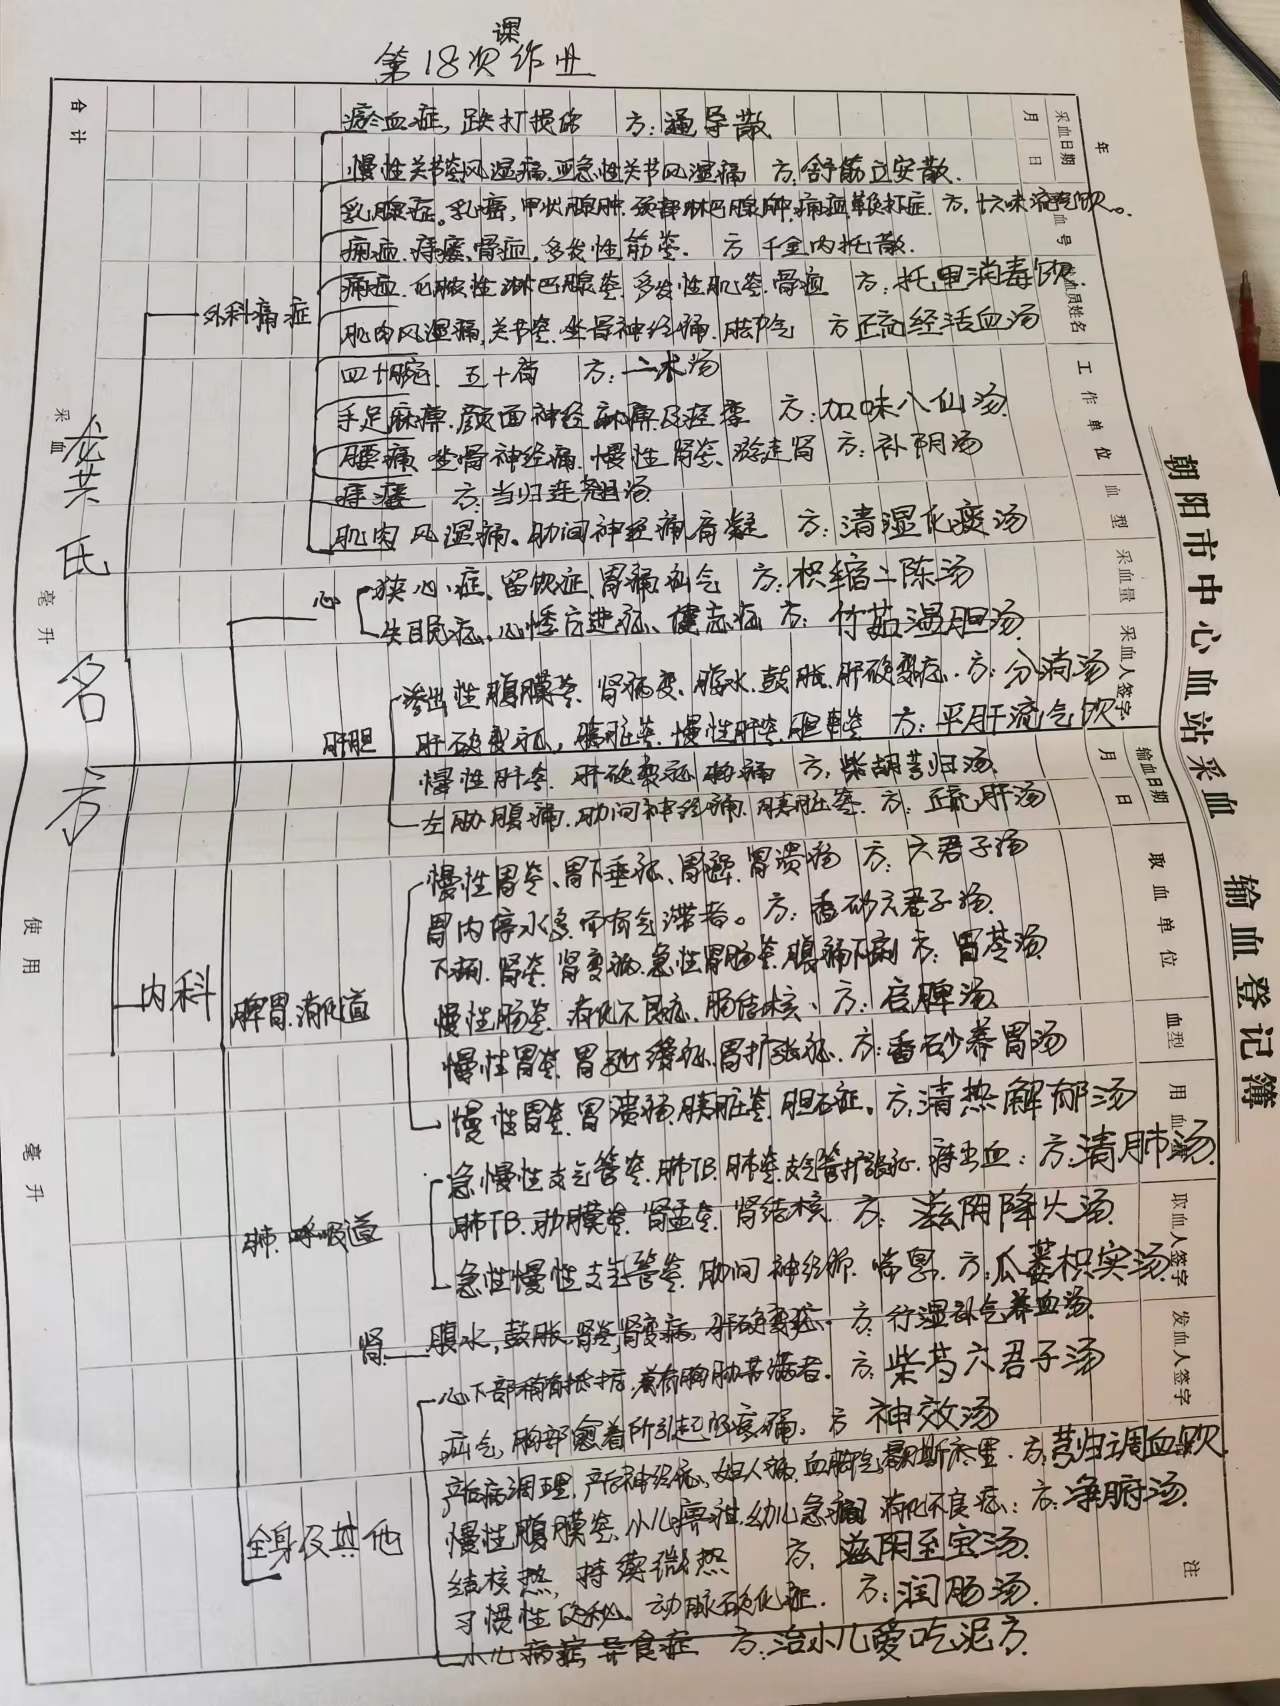 第18次课作业
年
采血日期
月 日
血 号
血员姓名
工作单位
血型
采血量
采血人签字
输血日期
月 日
取血单位
血型
用血量
取血人签字
发血人签字
注
合计
采血
毫升
使用
毫升
朝阳市中心血站采血 输血登记簿
龙芸氏
名方
外科痛症
瘀血症,跌打损伤 方:通导散
慢性关节炎风湿痛.亚急性关节风湿痛 方.舒筋立安散.
乳腺症。乳癌,甲状腺肿.颈部淋巴腺肿.方.十六味流气饮。
痈疽.痔瘘.骨疽,多发性筋炎. 方 千金内托散.
痈疽.化脓性淋巴腺炎.多发性肌炎.骨疽 方:托里消毒饮.
肌肉风湿痛,关节炎.坐骨神经痛.脚气 方 疏经活血汤
四十腕.五十肩 方:二术汤
手足麻痹.颜面神经麻痹及痉挛 方:加味八仙汤.
腰痛.坐骨神经痛.慢性肾炎.游走肾 方:补阴汤
痔瘘 方:当归连翘汤
肌肉风湿痛。肋间神经痛 方:清湿化痰汤
内科
心
狭心症、留饮症、胃痛疝气 方:枳缩二陈汤
失眠症.心悸亢进症、健忘症 方:竹茹温胆汤
肝胆
渗出性腹膜炎.肾病变.腹水.鼓胀.肝硬变症.方:分消汤
肝硬变症,胰脏炎.慢性肝炎.胆囊炎 方:平肝流气饮
慢性肝炎.肝硬变症 方:柴胡芎归汤.
左胁腹痛.肋间神经痛.胰脏炎.方:疏肝汤
脾胃.消化道
慢性胃炎、胃下垂症、胃癌.胃溃疡 方:六君子汤
胃内停水多而有气滞者。方:香砂六君子汤.
下痢.肾炎.肾变病.急性胃肠炎.腹痛下痢 方:胃苓汤
慢性肠炎.消化不良症.肠结核、方:启脾汤.
慢性胃炎.胃弛缓症.胃扩张症.方:香砂养胃汤
慢性胃炎.胃溃疡.胰脏炎.胆石症。方:清热解郁汤
肺.呼吸道
急慢性支气管炎.肺TB.肺炎.支气管扩张症.痔出血:方:清肺汤.
肺TB.肋膜炎.肾盂炎.肾结核 方:滋阴降火汤.
急性慢性支气管炎.肋间神经痛.喘息.方:瓜蒌枳实汤.
肾
腹水,鼓胀.肾炎,肾变病,肝硬变症.方:行湿补气养血汤.
全身及其他
心下部稍有抵抗,兼有胸胁苦满者.方:柴芍六君子汤
疝气,胸部 所引起的疼痛.方 神效汤
产后病调理.产后神经症.妇人病. 方:芎归调血饮
慢性腹膜炎.小儿 幼儿急痫 消化不良症:方:净腑汤.
结核热,持续微热 方:滋阴至宝汤.
习惯性便秘.动脉硬化症. 方:润肠汤.
小儿病症,异食症 方:治小儿爱吃泥方.